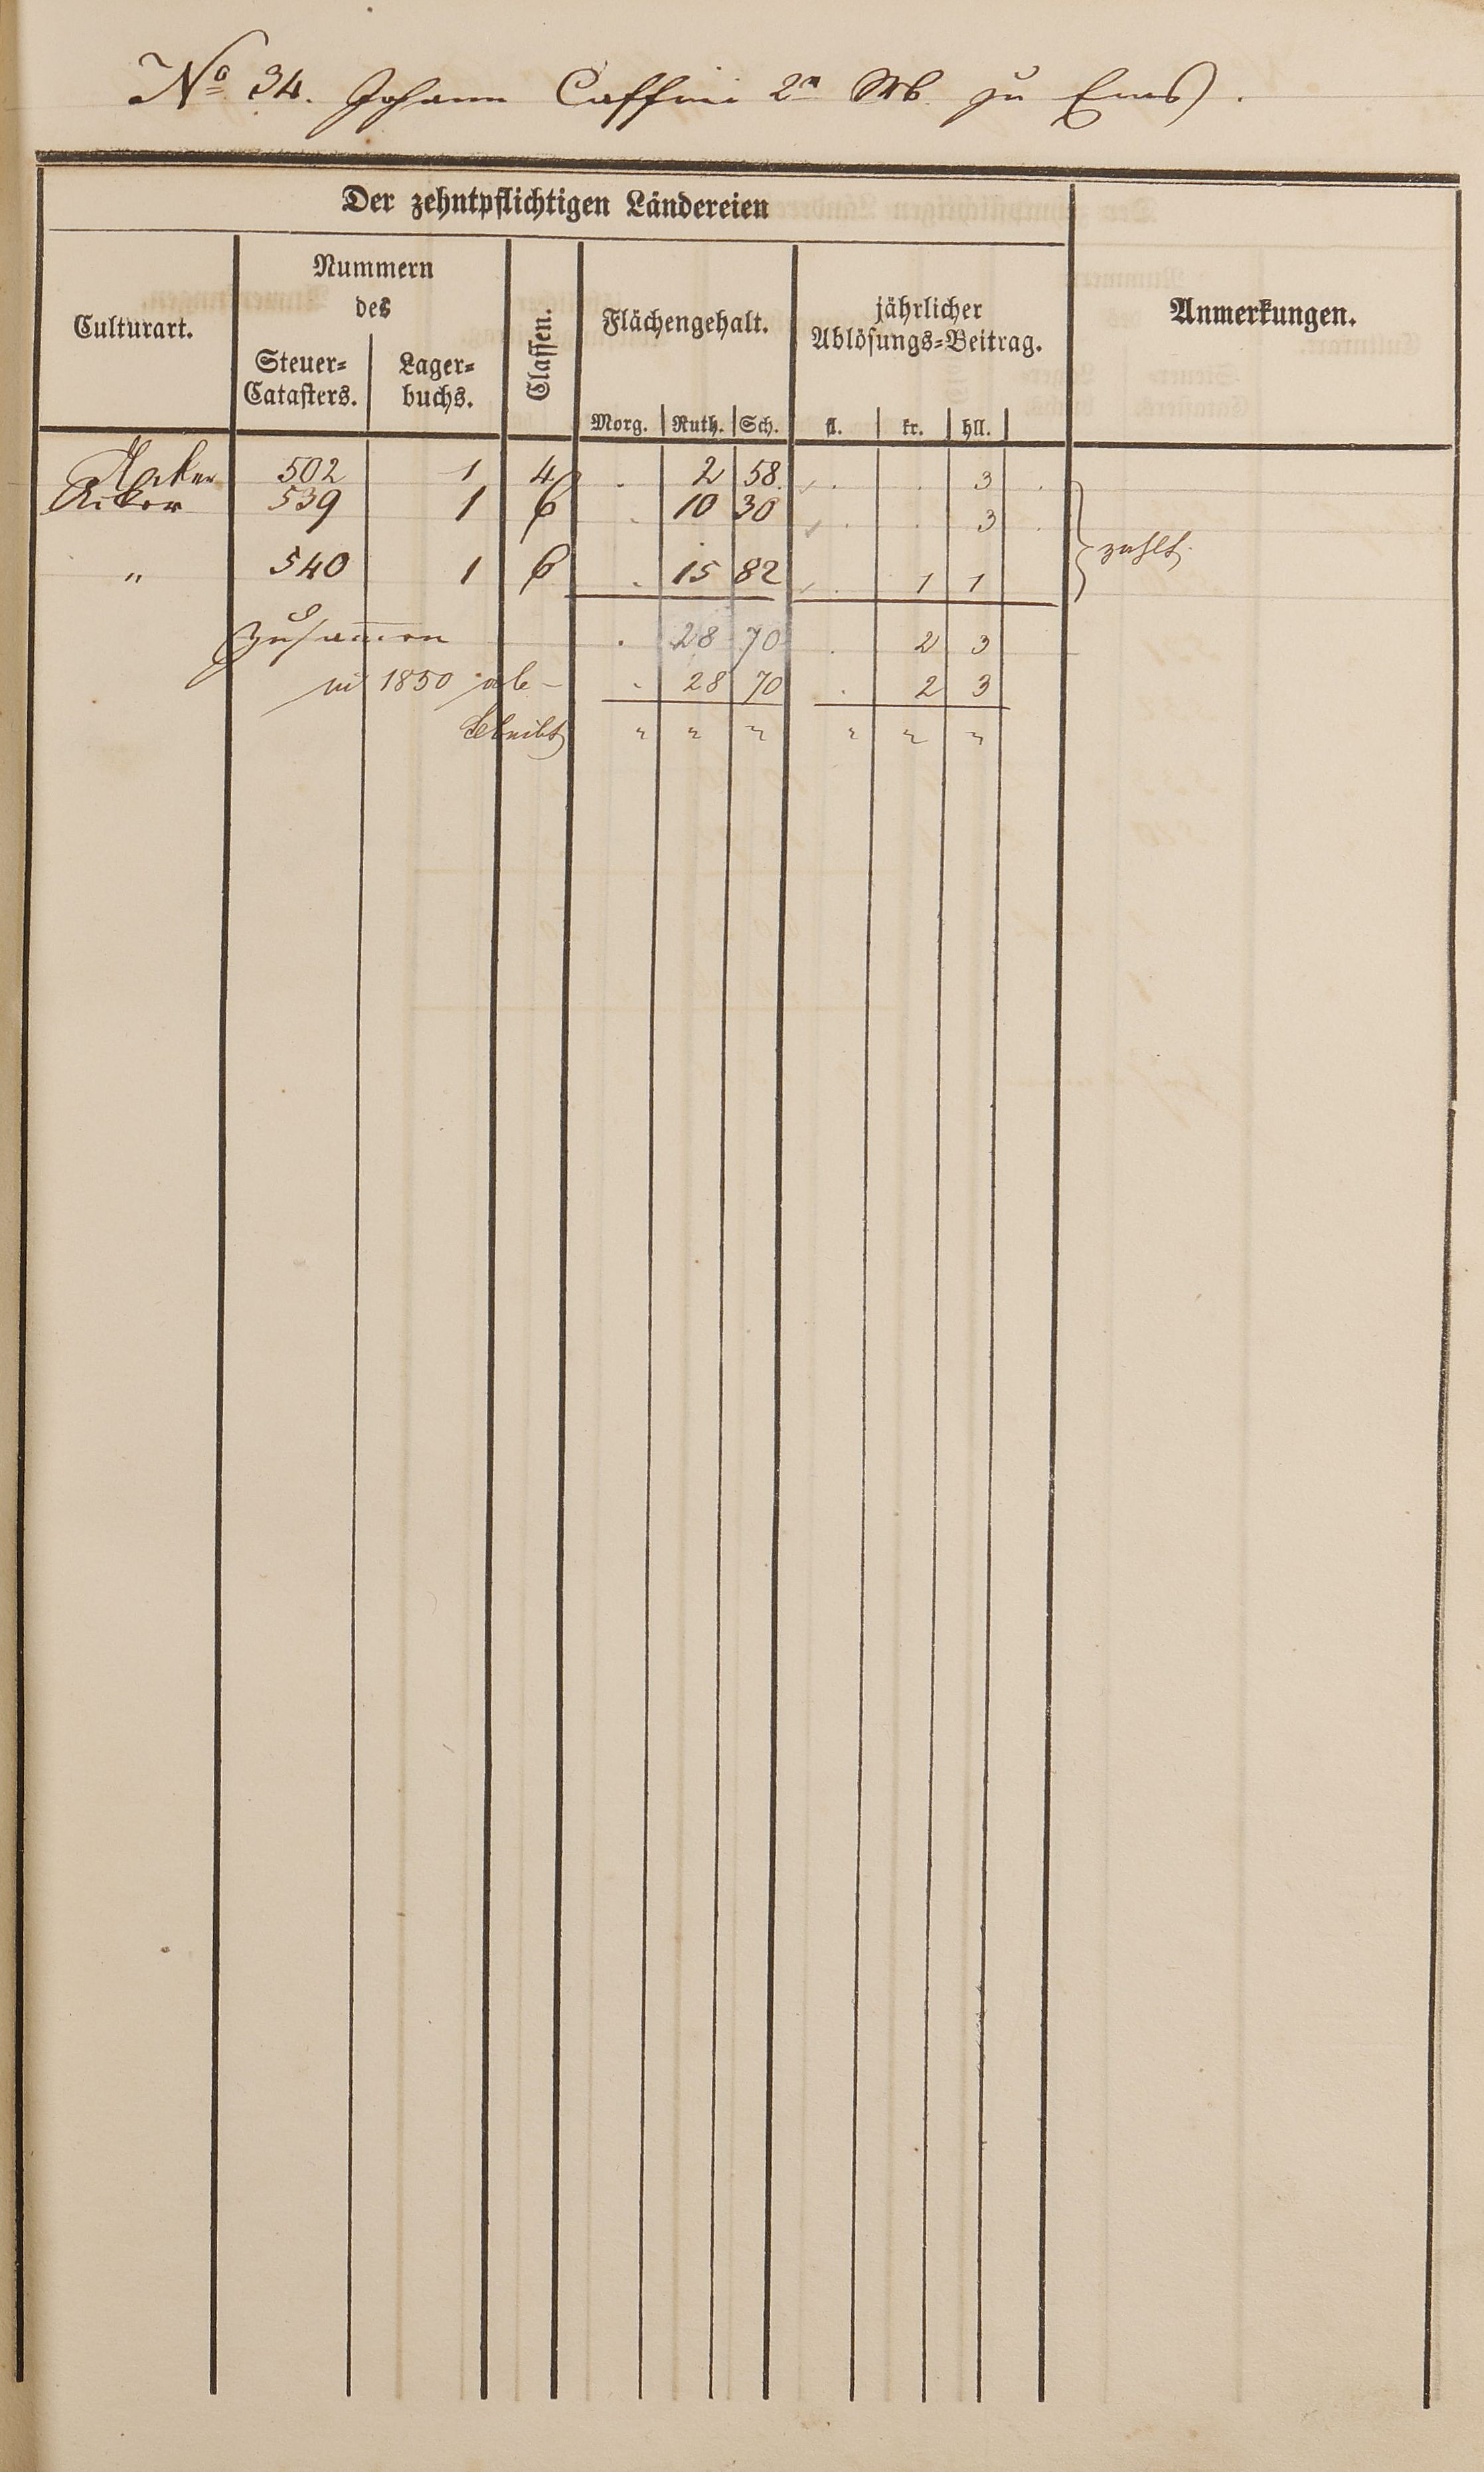 No 34. Johann Caffini 2r zu Ems.
Der zehntpflichtigen Ländereien
Culturart.
Nummern
des
Steuer=
Catasters.
Lager=
buchs.
Classen.
Flächengehalt.
Morg. Ruth. Sch.
jährlicher
Ablösungs=Beitrag.
fl. kr. hll.
Anmerkungen.
Acker 502 1 4 . 2 58 . . 3
Acker 539 1 6 . 10 30 . . 3
" 540 1 6 . 15 82 . 1 1
zahlt
Zusammen . 28 70 . 2 3
in 1850 ab- . 28 70 . 2 3
bleibt " " " " " "